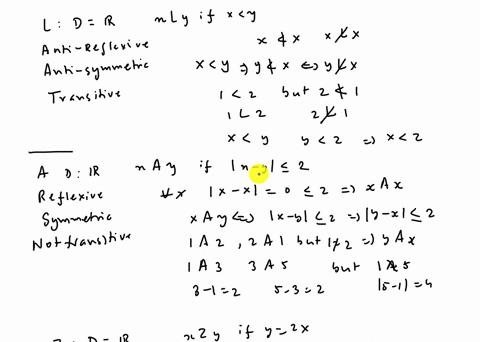 L : D = ℝ   x L y if x < y
Anti-Reflexive   x ≮ x   x L̸ x
Anti-symmetric   x < y ⇒ y ≮ x ⇔ y L̸ x
Transitive   1 < 2 but 2 ≮ 1
1 L 2   2 L̸ 1
x < y   y < z ⇒ x < z
A D : ℝ   x A y if |x-y| ≤ 2
Reflexive   ∀x |x-x| = 0 ≤ 2 ⇒ x A x
Symmetric   x A y ⇔ |x-y| ≤ 2 ⇒ |y-x| ≤ 2
Not transitive   1 A 2 , 2 A 1 but 1 ≠ 2 ⇒ y A x
1 A 3   3 A 5   but 1 A̸ 5
3-1=2   5-3=2   |5-1|=4
Z : D = ℝ   x Z y if y = 2x